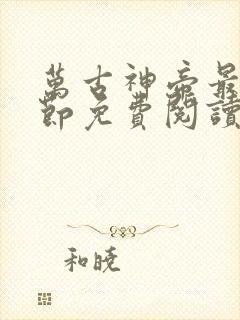 萬古神帝最
節免費閱讀
和曉